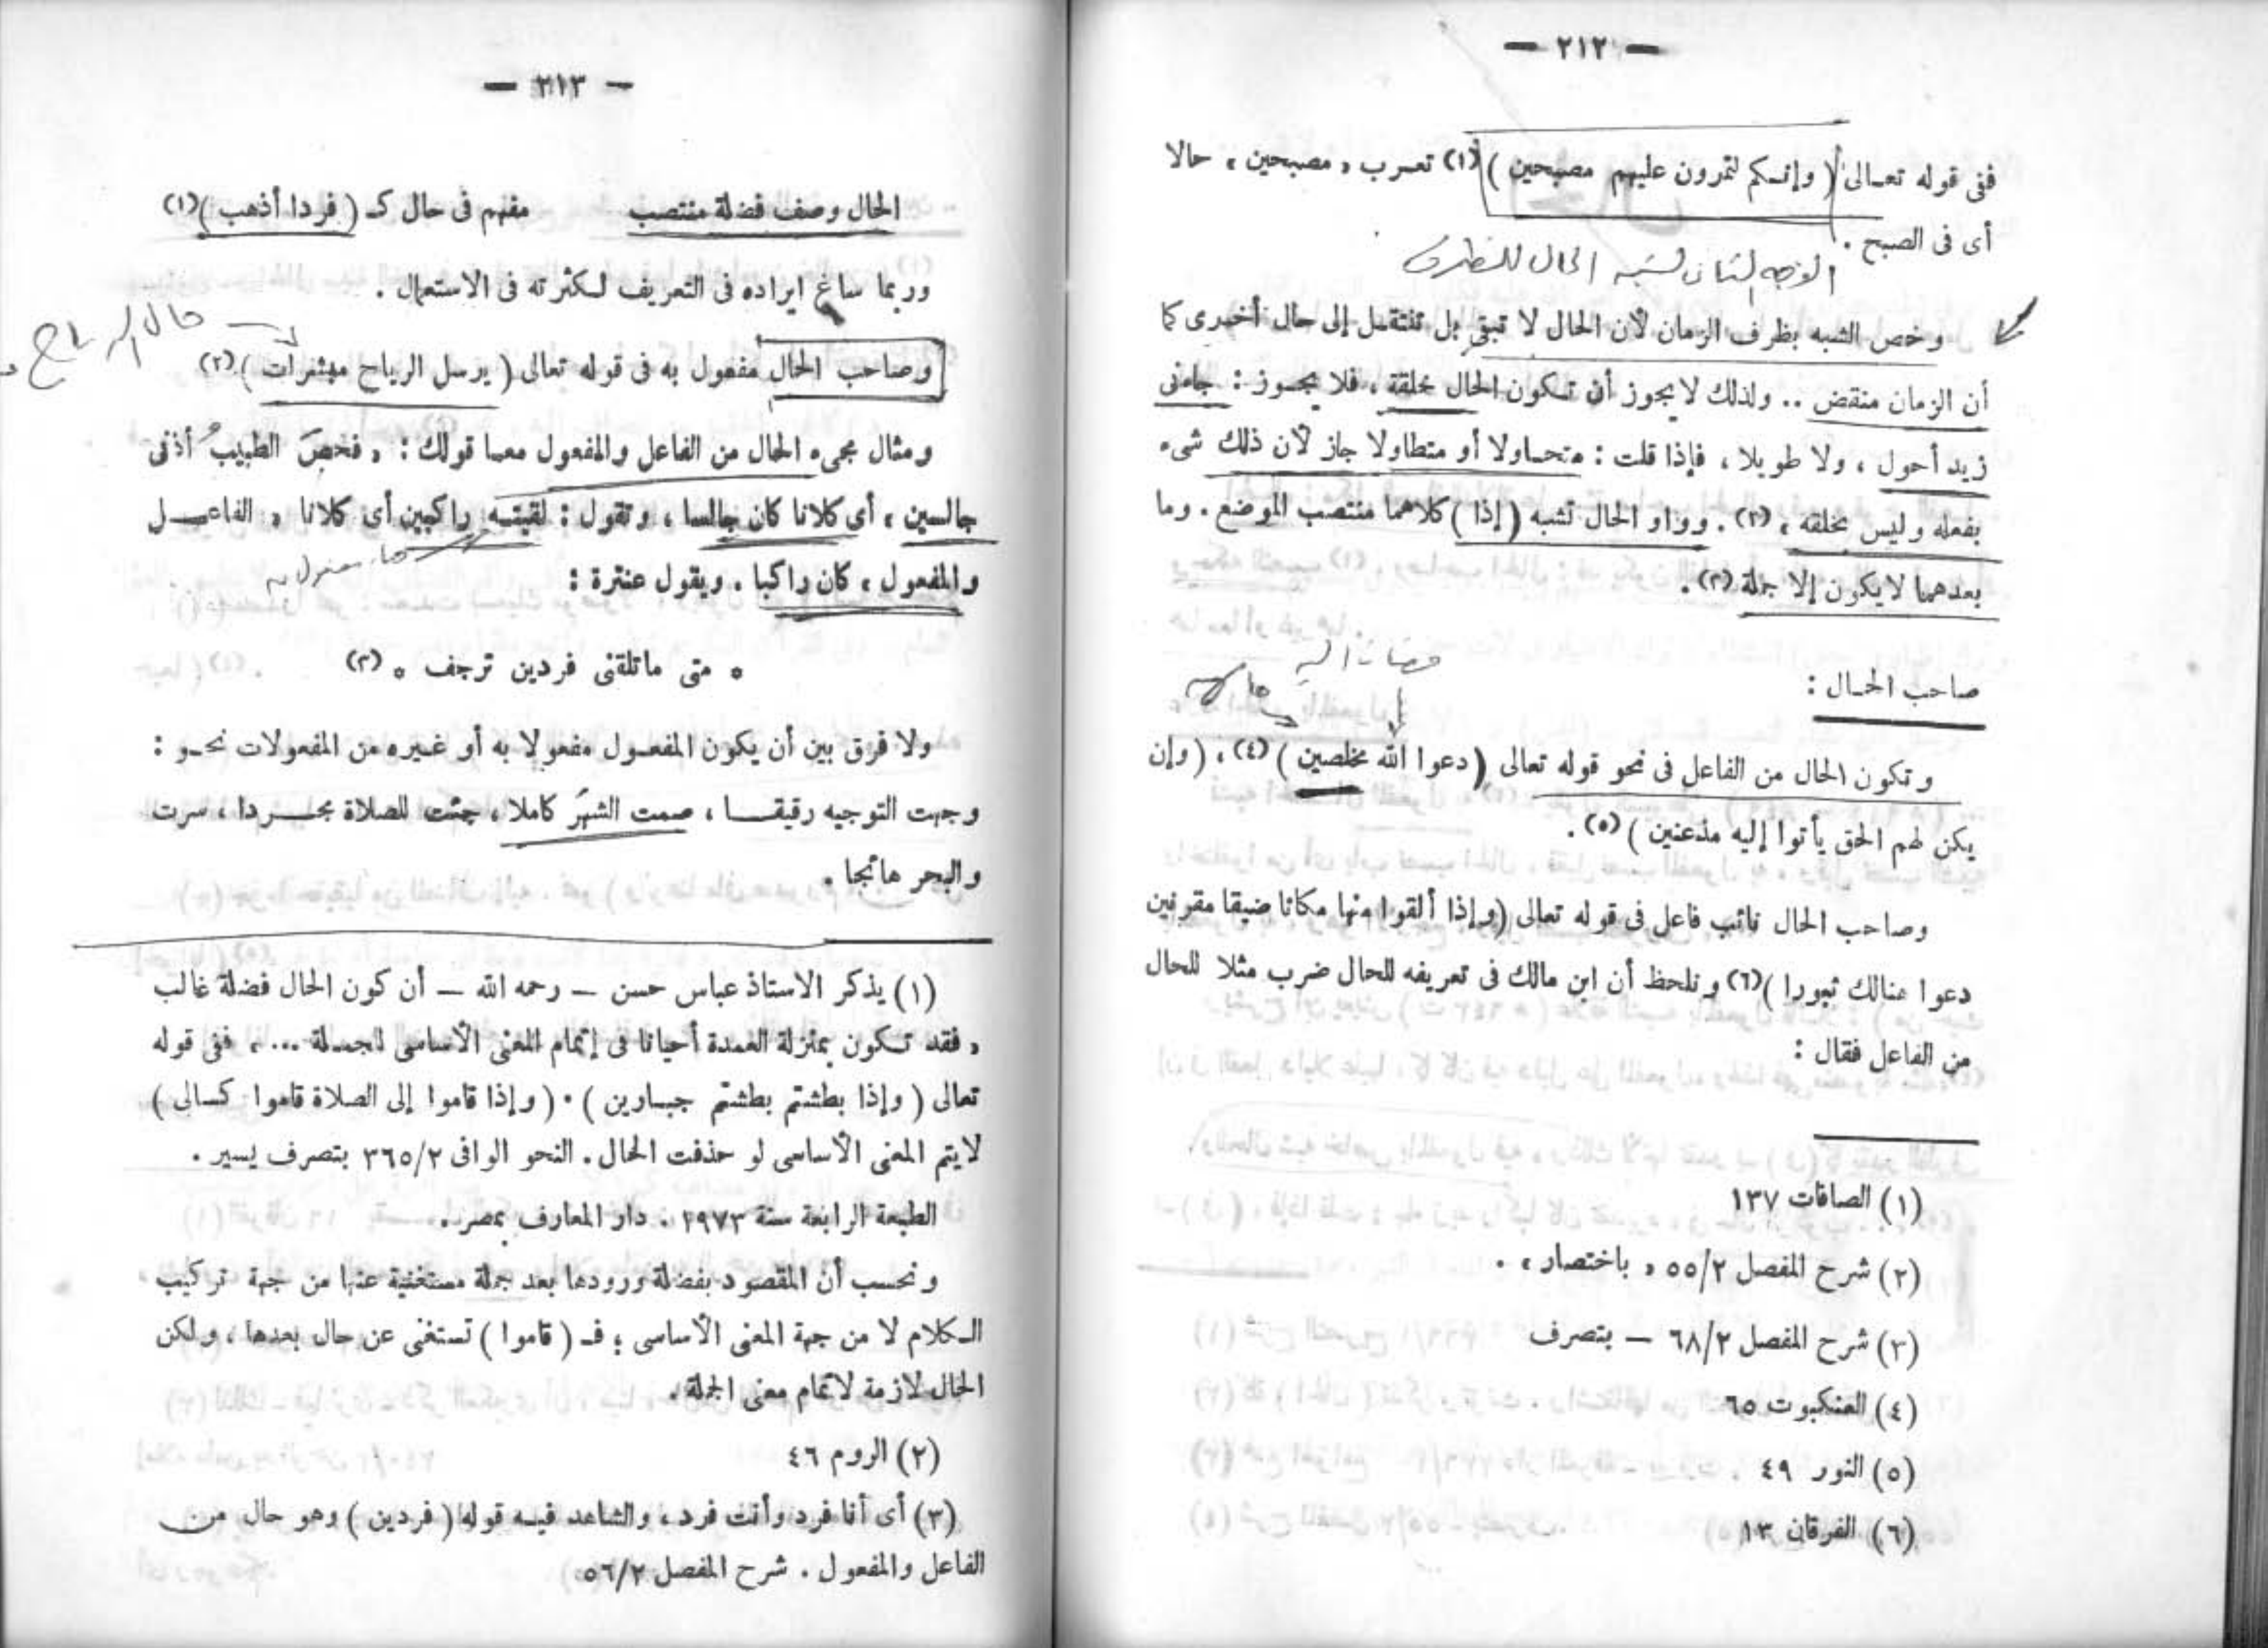 — ٢١٢ —
ففى قوله تعـالى ( وإنـكم لتمرون عليهم مصبحين )(١) تعـرب « مصبحين » حالا
أى فى الصبح .
الوجه الثانى لشبه الحال للظرف
وخص الشبه بظرف الزمان لأن الحال لا تبقى بل تنتقـل إلى حال أخـرى كما
أن الزمان منقض .. ولذلك لا يجوز أن تـكون الحال خلقة ، فلا يجـوز : جاءنى
زيد أحول ، ولا طويلا ، فإذا قلت : متحـاولا أو متطاولا جاز لأن ذلك شىء
بفعله وليس بخلقه » (٢) . وواو الحال تشبه ( إذا ) كلاهما منتصب الموضع . وما
بعدهمـا لا يكون إلا جملة (٣) .
صاحب الحـال :
وتكون الحال من الفاعل فى نحو قوله تعالى ( دعوا الله مخلصين ) (٤) ، ( وإن
يكن لهم الحق يأتوا إليه مذعنين ) (٥) .
وصاحب الحال نائب فاعل فى قوله تعالى ( وإذا ألقوا منها مكانا ضيقا مقرنين
دعوا هنالك ثبورا )(٦) ونلحظ أن ابن مالك فى تعريفه للحال ضرب مثلا للحال
من الفاعل فقال :
(١) الصافات ١٣٧
(٢) شرح المفصل ٢/٥٥ « باختصار » .
(٣) شرح المفصل ٢/٦٨ — بتصرف
(٤) العنكبوت ٦٥
(٥) النور ٤٩
(٦) الفرقان ١٣
— ٢١٣ —
الحال وصف فضلة منتصب مفهم فى حال كـ ( فردا أذهب )(١)
وربما ساغ ايراده فى التعريف لـكثرته فى الاستعمال .
حال الرياح
وصاحب الحال مفعول به فى قوله تعالى ( يرسل الرياح مبشرات )(٢)
ومثال مجىء الحال من الفاعل والمفعول معـا قولك : « فحصَ الطبيبُ أذنى
جالسين » أى كلانا كان جالسا ، وتقول : لقيتـه راكبين أى كلانا « الفاعـل
والمفعول » كان راكبا . ويقول عنترة :
* متى ماتلقنى فردين ترجف * (٣)
ولا فرق بين أن يكون المفعـول مفعولا به أو غـيره من المفعولات نحـو :
وجهت التوجيه رقيقـا ، صمت الشهرَ كاملا ، جئت للصلاة مجـردا ، سرت
والبحر هائجا .
(١) يذكر الاستاذ عباس حسن — رحمه الله — أن كون الحال فضلة غالب
« فقد تـكون بمنزلة العمدة أحيانا فى إتمام المعنى الأساسى للجمـلة ... ، ففى قوله
تعالى ( وإذا بطشتم بطشتم جبـارين ) . ( وإذا قاموا إلى الصلاة قاموا كسالى )
لا يتم المعنى الأساسى لو حذفت الحال . النحو الوافى ٢/٣٦٥ بتصرف يسير .
الطبعة الرابعة سنة ١٩٧٣ . دار المعارف بمصر .
ونحسب أن المقصود بفضلة ورودها بعد جملة مستغنية عنها من جهة تركيب
الـكلام لا من جهة المعنى الأساسى ؛ فـ ( قاموا ) تستغنى عن حال بعدها ، ولكن
الحال لازمة لاتمام معنى الجملة .
(٢) الروم ٤٦
(٣) أى أنا فرد وأنت فرد ، والشاهد فيـه قوله ( فردين ) وهو حال من
الفاعل والمفعول . شرح المفصل ٢/٥٦